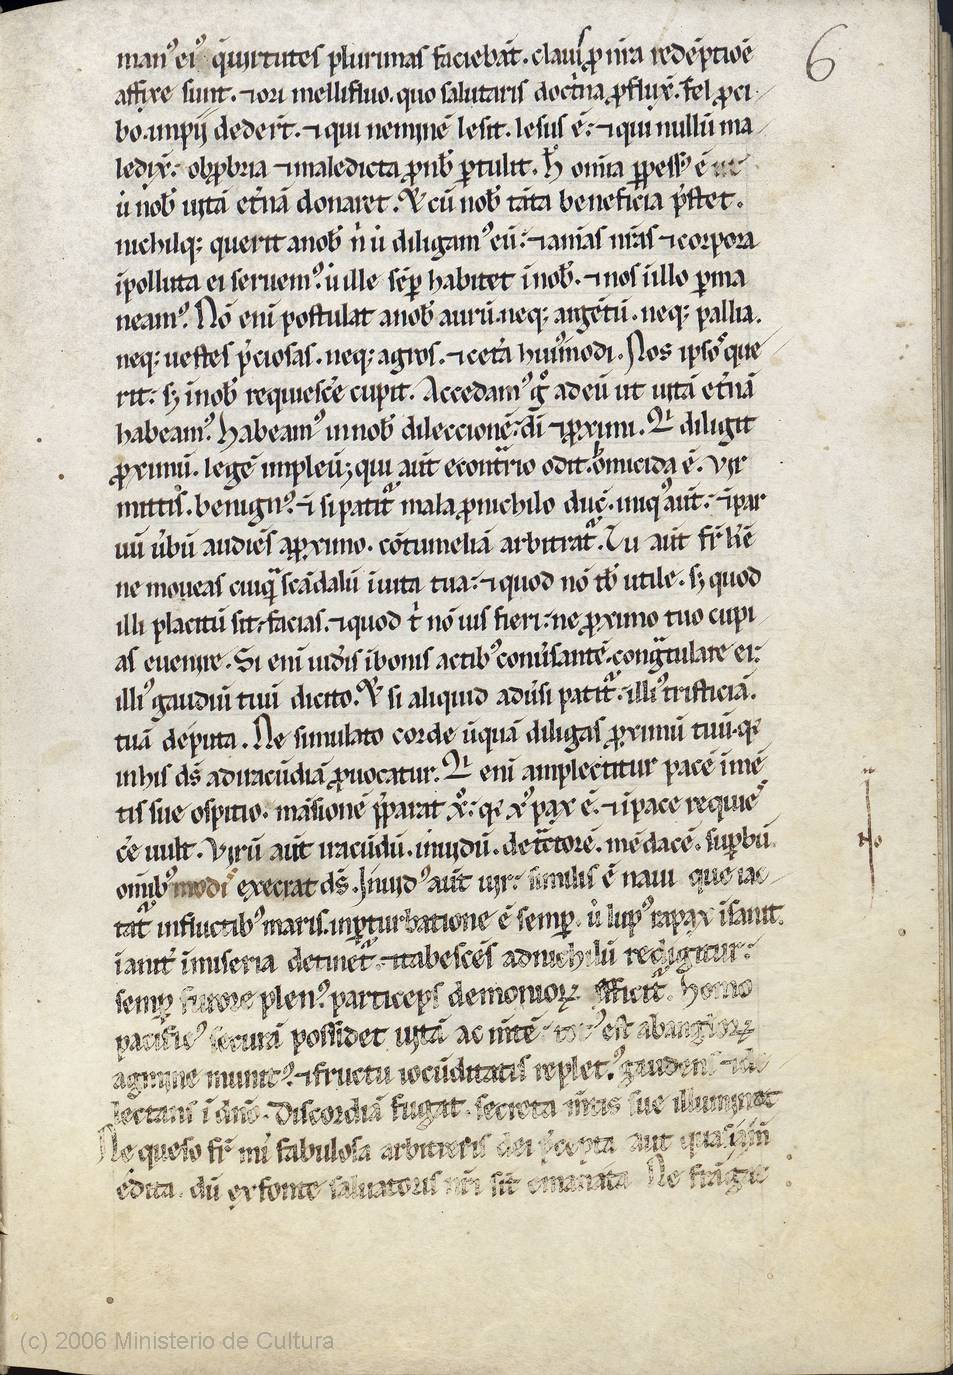 6
manꝰ eiꝰ q̇ uirtutes plurimas faciebāt. clauiſ ꝓ nr̄a redēptiōē
affixe sunt. ⁊ ori mellifluo. quo salutaris doctͥna ꝓfluxͭ. fel ꝓ ci
bo. impij dederūt. ⁊ qui neminē lesit. lesus ē: ⁊ qui nullū ma
ledix̄: obꝓbria ⁊ maledicta ꝓ nob̄ ꝑtulit. h̄ omīa ꝑpessꝰ ē ut
ů nob̄ uitā et̄nā donaret. Et cū nob̄ tāta beneficia p̄stet.
nichilqꝫ querit a nob̄ n̄ ů diligamꝰ eū: ⁊ anīas nr̄as ⁊ corpora
īpolluta ei seruemꝰ. ů ille sēꝑ habitet ī nob̄. ⁊ nos ī illo ꝑma
neamꝰ. Nō enī postulat a nob̄ aurū. neqꝫ argētū. neqꝫ pallia.
neqꝫ uestes p̄ciosas. neqꝫ agros. ⁊ cetā huiꝰmodi. Nos ipsoꝰ que
rit: sꝫ ī nob̄ requiesc̄e cupit. Accedamꝰ gͦ ad eū ut uitā et̄nā
habeamꝰ. habeamꝰ in nob̄ dileccionē: dī ⁊ ꝓximi. Qͥ diligit
ꝓximū. legē impleuꝫ qui aūt econͭrio odit. homicida ē. Vir
mittiſ. benignꝰ. ⁊ si patit᷑ mala ꝓ nichilo duc̄. iniqꝰ aūt: ⁊ par
uū ūbū audiēs a ꝓximo. cōtumeliā arbitrat᷑. Tu aūt fr̄ k̄e
ne moueas cuiqᷓ scādalū ī uita tua: ⁊ quod nō tb̄ utile. sꝫ quod
illi placitū sit. facias. ⁊ quod tͥ nō uis fieri: ne ꝓximo tuo cupi
as euenire. Si enī uid̄is ī bonis actibꝰ conūsantē. congͣtulare ei:
illiꝰ gaudiū tuū dicito. Et si aliquid adūsi patit᷑. illiꝰ tristiciā.
tuā deputa. Ne simulato corde ūquā diligas ꝓximū tuū. qꝛ
in his ds̄ ad iracūdiā ꝓuocatur. Qͥ enī amplectitur pacē ī mē
tis sue ospitio. māsionē p̄parat xͦ: qꝛ xꝰ pax ē. ⁊ ī pace requie
sc̄e uult. Virū aūt iracūdū. inuidū. detͣctorē. mēdacē. suꝑbū.
omībꝰ modiſ execrat ds̄. Inuidꝰ aūt uir: similis ē naui que iac
tat᷑ in fluctibꝰ maris. in ꝑturbatione ē semꝑ. ů lupꝰ rapax īsanit.
ianit̄ ī miseria detinet᷑. ⁊ tabescēs ad nichilū redigitur:
semꝑ furore plenꝰ. particeps demonioꝝ efficit᷑. Homo
pacificꝰ securā possidet uitā ac mētē. est ab angl̄oꝝ
agmine munitꝰ. ⁊ fructu iocūditatis repletꝰ. gaudens ⁊ de
lectans ī dn̄o. Discordiā fugat. secreta mētis sue illuminat
Ne queso fr̄ mi fabulosa arbitreris dei p̄cepta aut quasi
edita. dū ex fonte saluatoris nr̄i sit emanata. Ne frāgat
(c) 2006 Ministerio de Cultura